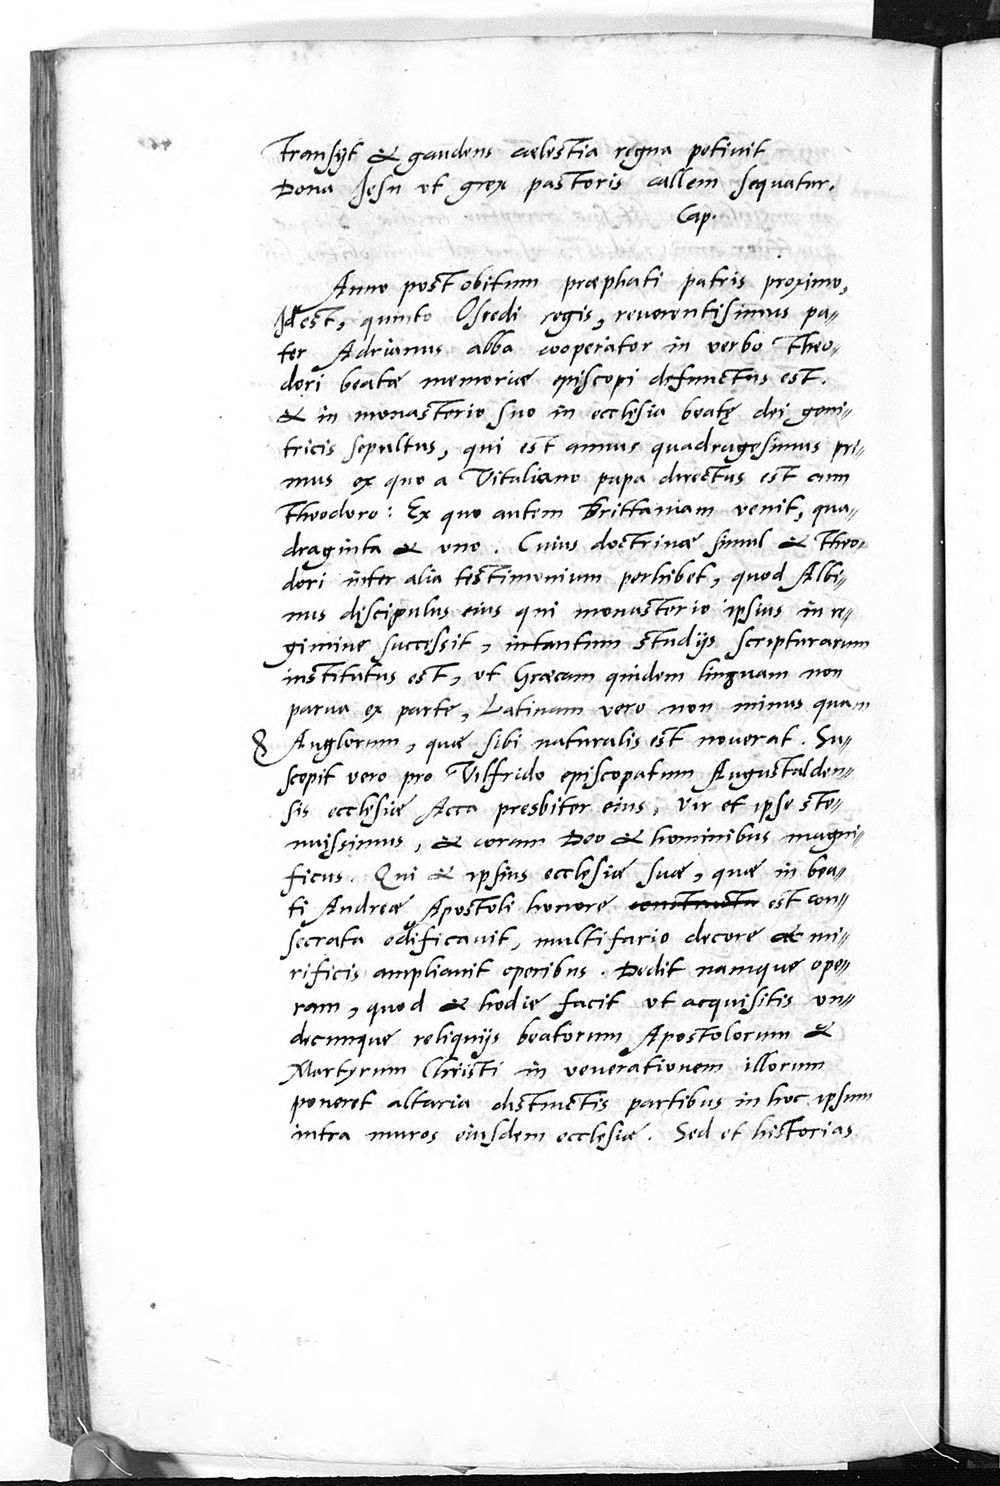 Transijt & gaudens cælestia regna petiuit
Dona Jesu ut grex pastoris callem sequatur.
Cap.
Anno post obitum præphati patris proximo,
Id est, quinto Osredi regis, reuerentisimus pa-
ter Adrianus abba cooperator in verbo Theo-
dori beatæ memoriæ episcopi defunctus est.
& in monasterio suo in ecclesia beatę dei geni-
tricis sepultus, qui est annus quadragesimus pri-
mus ex quo a Vitaliano papa directus est cum
Theodoro: Ex quo autem Brittaniam venit, qua-
draginta & uno. Cuius doctrinæ simul & Theo-
dori inter alia testimonium perhibet, quod Albi-
nus discipulus eius qui monasterio ipsius in re-
gimine successit, intantum studijs scripturarum
institutus est, ut Græcam quidem linguam non
parua ex parte, Latinam vero non minus quam
Anglorum, quæ sibi naturalis est nouerat. Su-
scepit vero pro Vilfrido episcopatum Augustalden-
sis ecclesiæ Acca presbiter eius, vir et ipse stre-
nuissimus, & coram Deo & hominibus magni-
ficus. Qui & ipsius ecclesiæ suæ, quæ in bea-
ti Andreæ Apostoli honore constructa est con-
secrata edificauit, multifario decore ac mi-
rificis ampliauit operibus. Dedit namque ope-
ram, quod & hodie facit ut acquisitis un-
decunque reliquijs beatorum Apostolorum &
Martyrum Christi in venerationem illorum
poneret altaria distinctis partibus in hoc ipsum
intra muros eiusdem ecclesiæ. Sed et historias